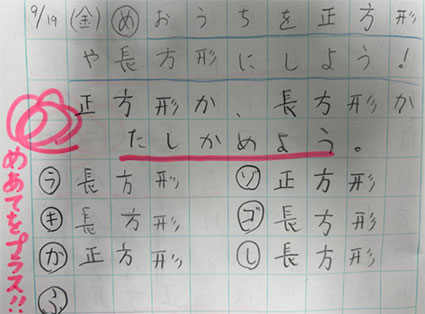 9/19(金)めおうちを正方形
や長方形にしよう!
正方形か、長方形か
たしかめよう。
ラ長方形 ゾ正方形
キ長方形 ゴ長方形
か正方形 し長方形
ふ
めあてをプラス!!